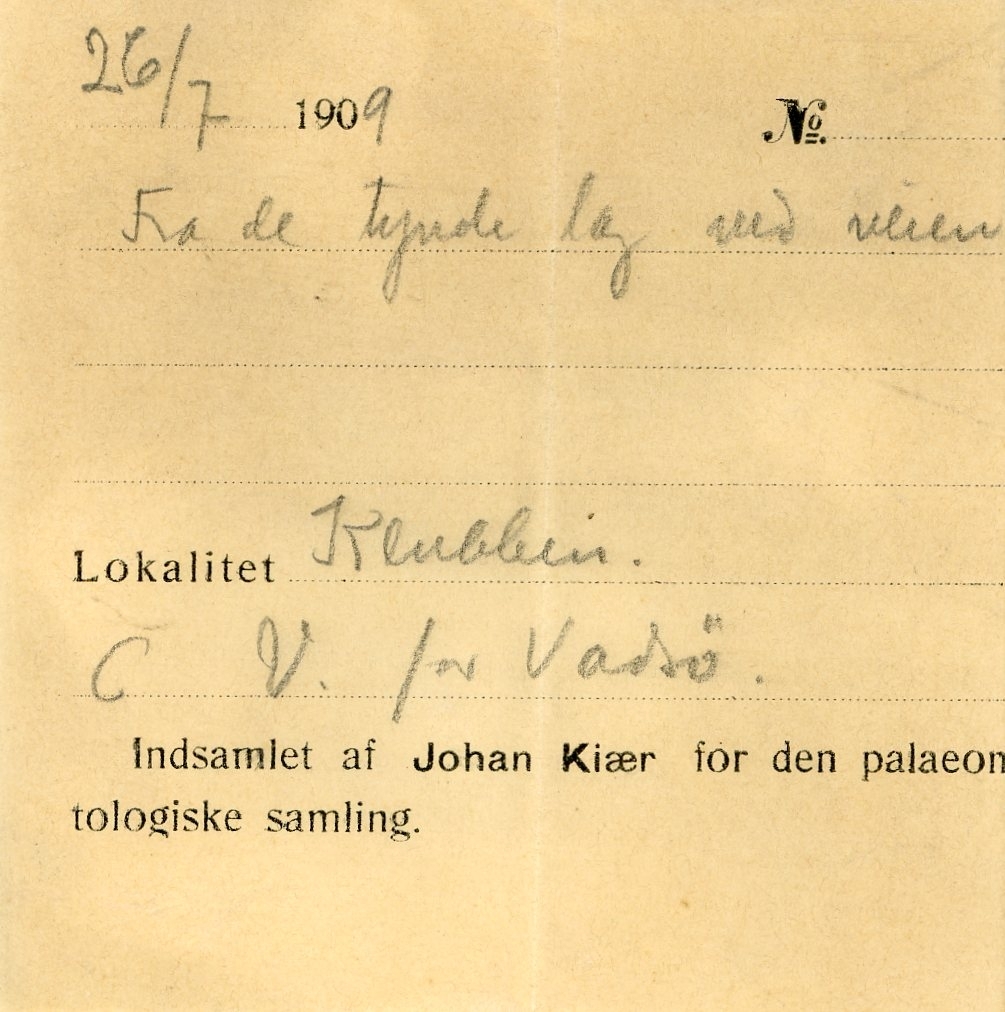 26/7 1909 No.
Fra de tynde lag ved veien
Lokalitet Klubben.
C V. for Vadsö.
Indsamlet af Johan Kiær for den palaeon
tologiske samling.